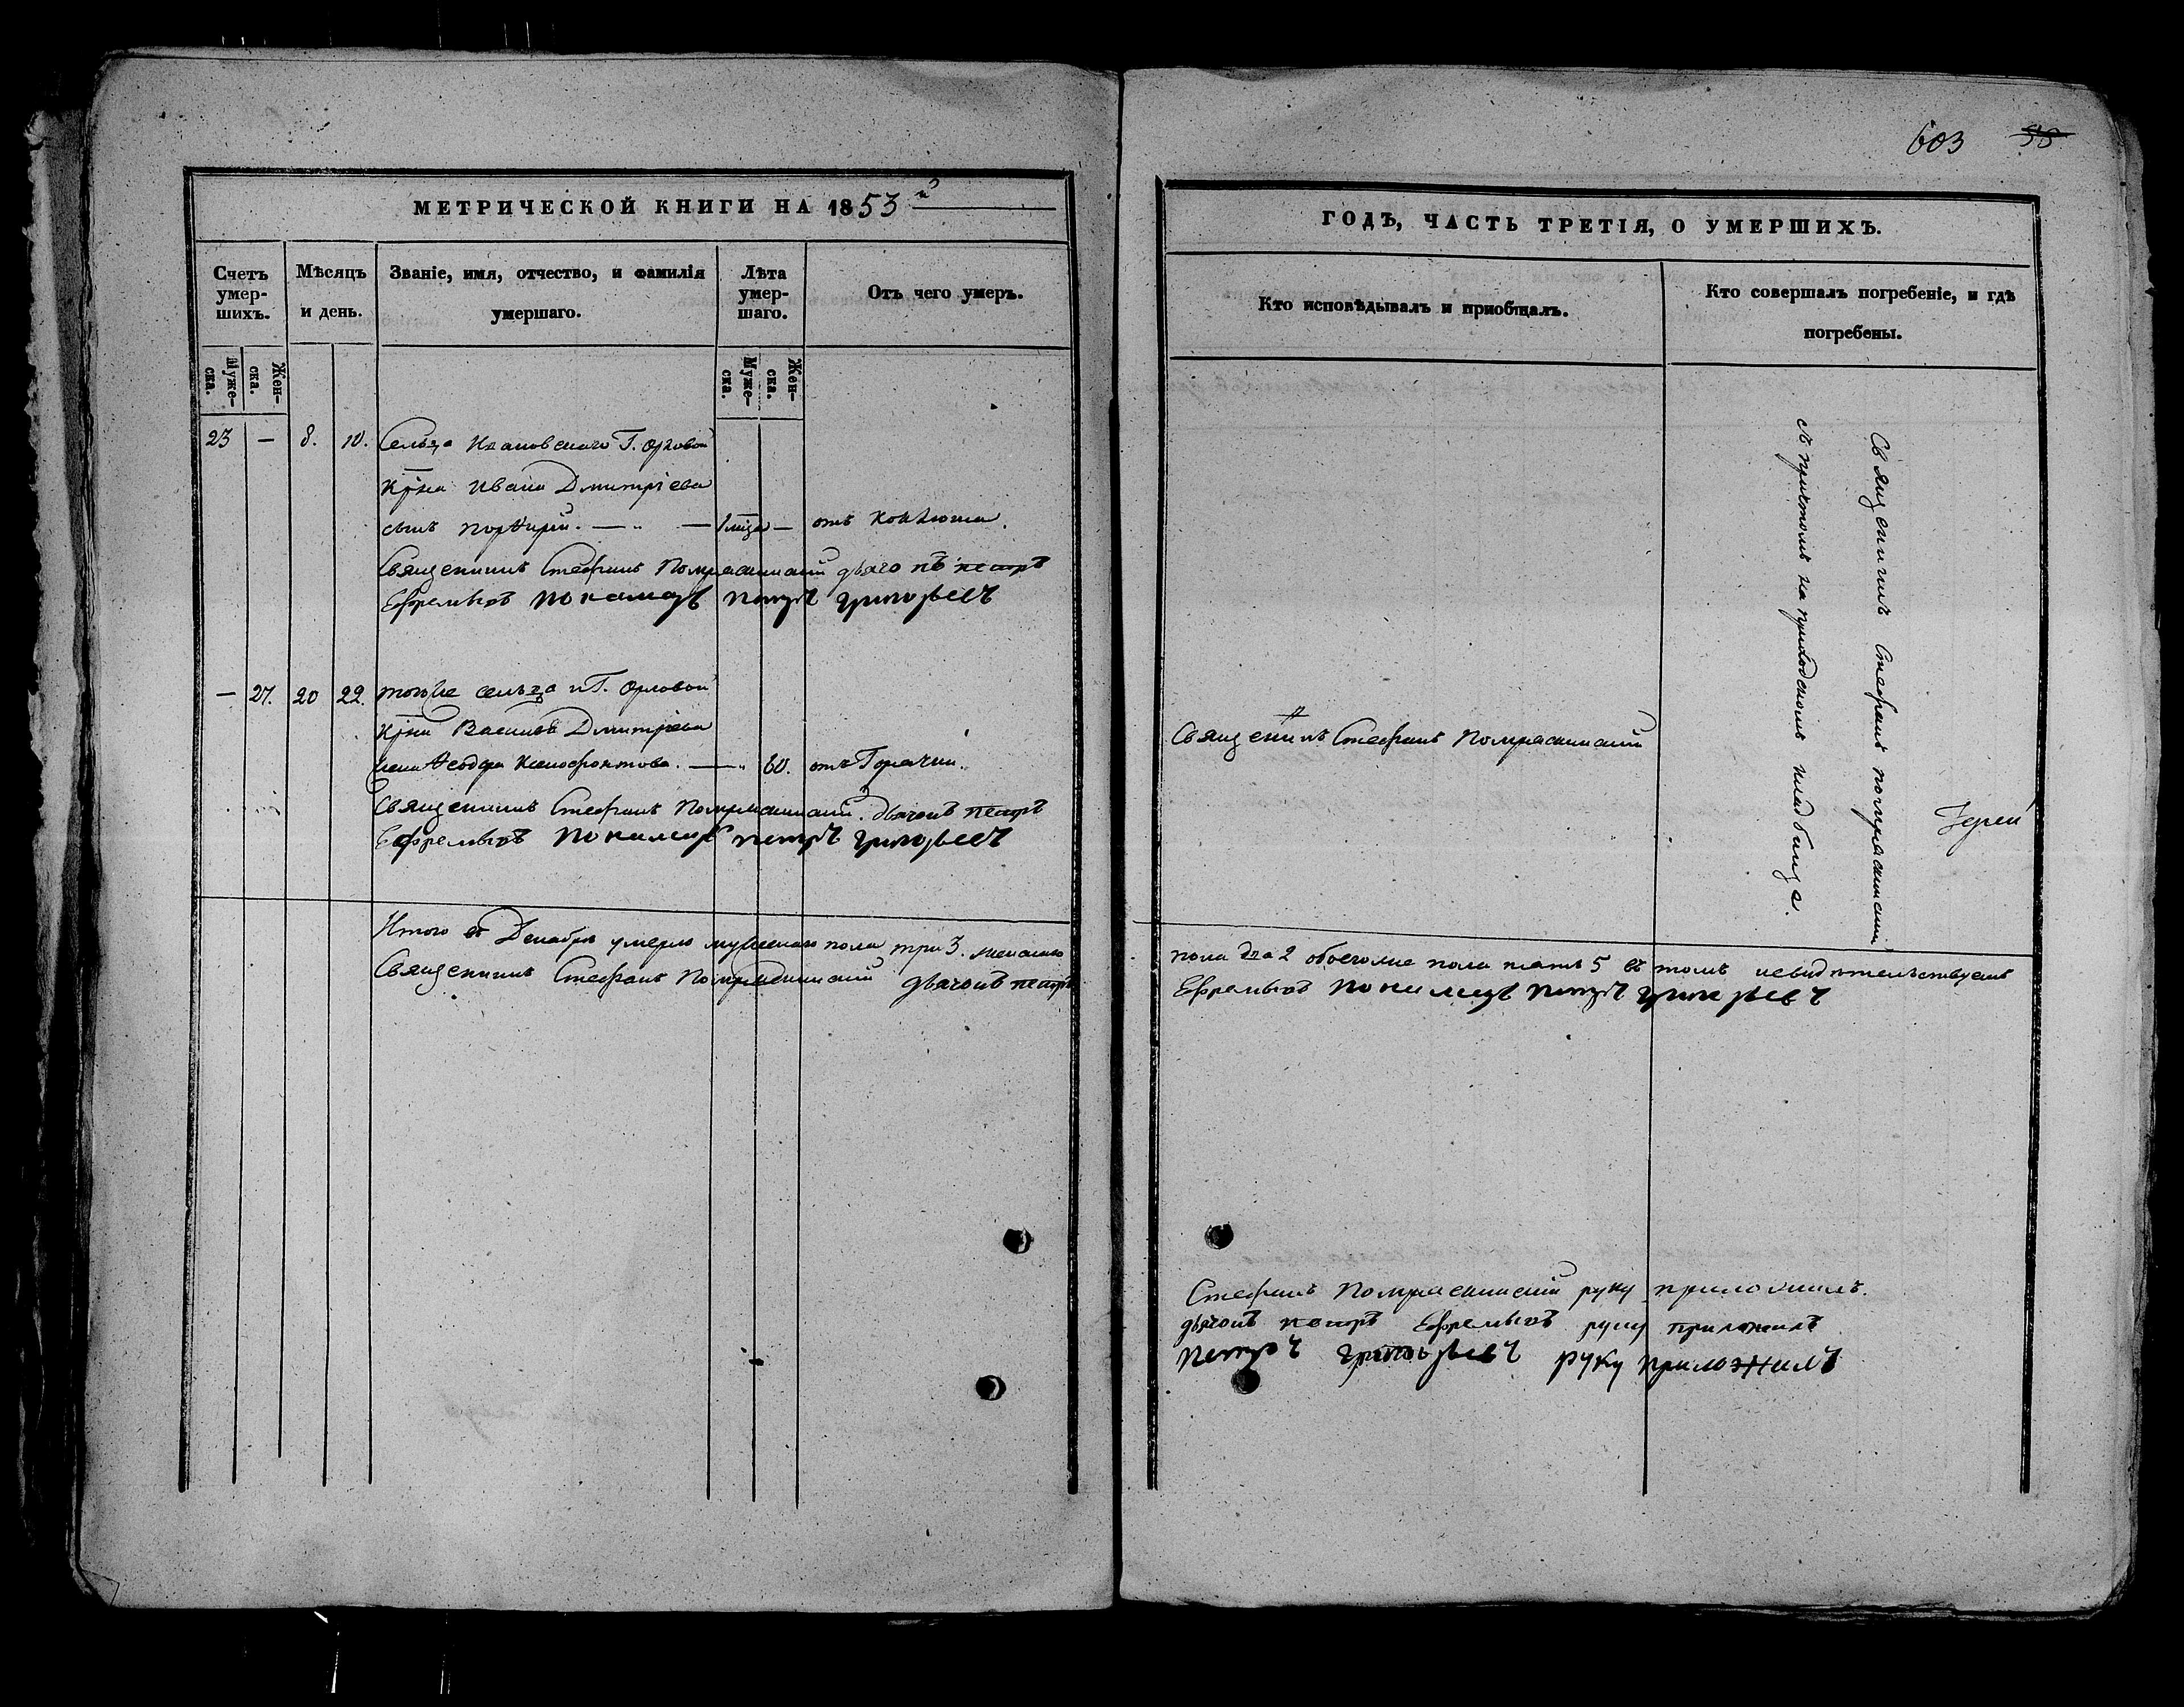 603 58
МЕТРИЧЕСКОЙ КНИГИ НА 1853 й
ГОДЪ, ЧАСТЬ ТРЕТІЯ, О УМЕРШИХЪ.
Счетъ умер-шихъ.
Мѣсяцъ и день.
Званіе, имя, отчество, и фамилія умершаго.
Лѣта умер-шаго.
Отъ чего умеръ.
Кто исповѣдывалъ и пріобщалъ.
Кто совершалъ погребеніе, и гдѣ погребены.
Муже-ска.
Жен-ска.
Муже-ска.
Жен-ска.
23 — 8. 10. Сельца Ивановскаго Г. Орловой
Крна Ивана Дмитріева
сынъ Порѳирій. — " — 1 мца — отъ Коклюша.
Священникъ Стефанъ Помрясинскій дьячокъ Петръ
Ефремовъ Пономарь Петръ Григорьевъ
— 27. 20 22. тогоже сельца и Г. Орловой
Крна Василья Дмитріева
жена Ѳеодора Ксенофонтова. — " 60. отъ Горячки.
Священникъ Стефанъ Помрясинскій
Священникъ Стефанъ Помрясинскій. дьячокъ Петръ
Ефремовъ Пономарь Петръ Григорьевъ
Священникъ Стефанъ Помрясинскій
съ причтомъ на приходскомъ кладбищѣ.
Іерей
Итого въ Декабрѣ умерло мужескаго пола три 3. женскаго
пола два 2 обоегоже пола пять 5 въ томъ и свидѣтельствуемъ
Священникъ Стефанъ Помрясинскій дьячокъ Петръ
Ефремовъ Пономарь Петръ Григорьевъ
Стефанъ Помрясинскій руку приложилъ.
дьячокъ Петръ Ефремовъ руку приложилъ
Петръ Григорьевъ руку приложилъ